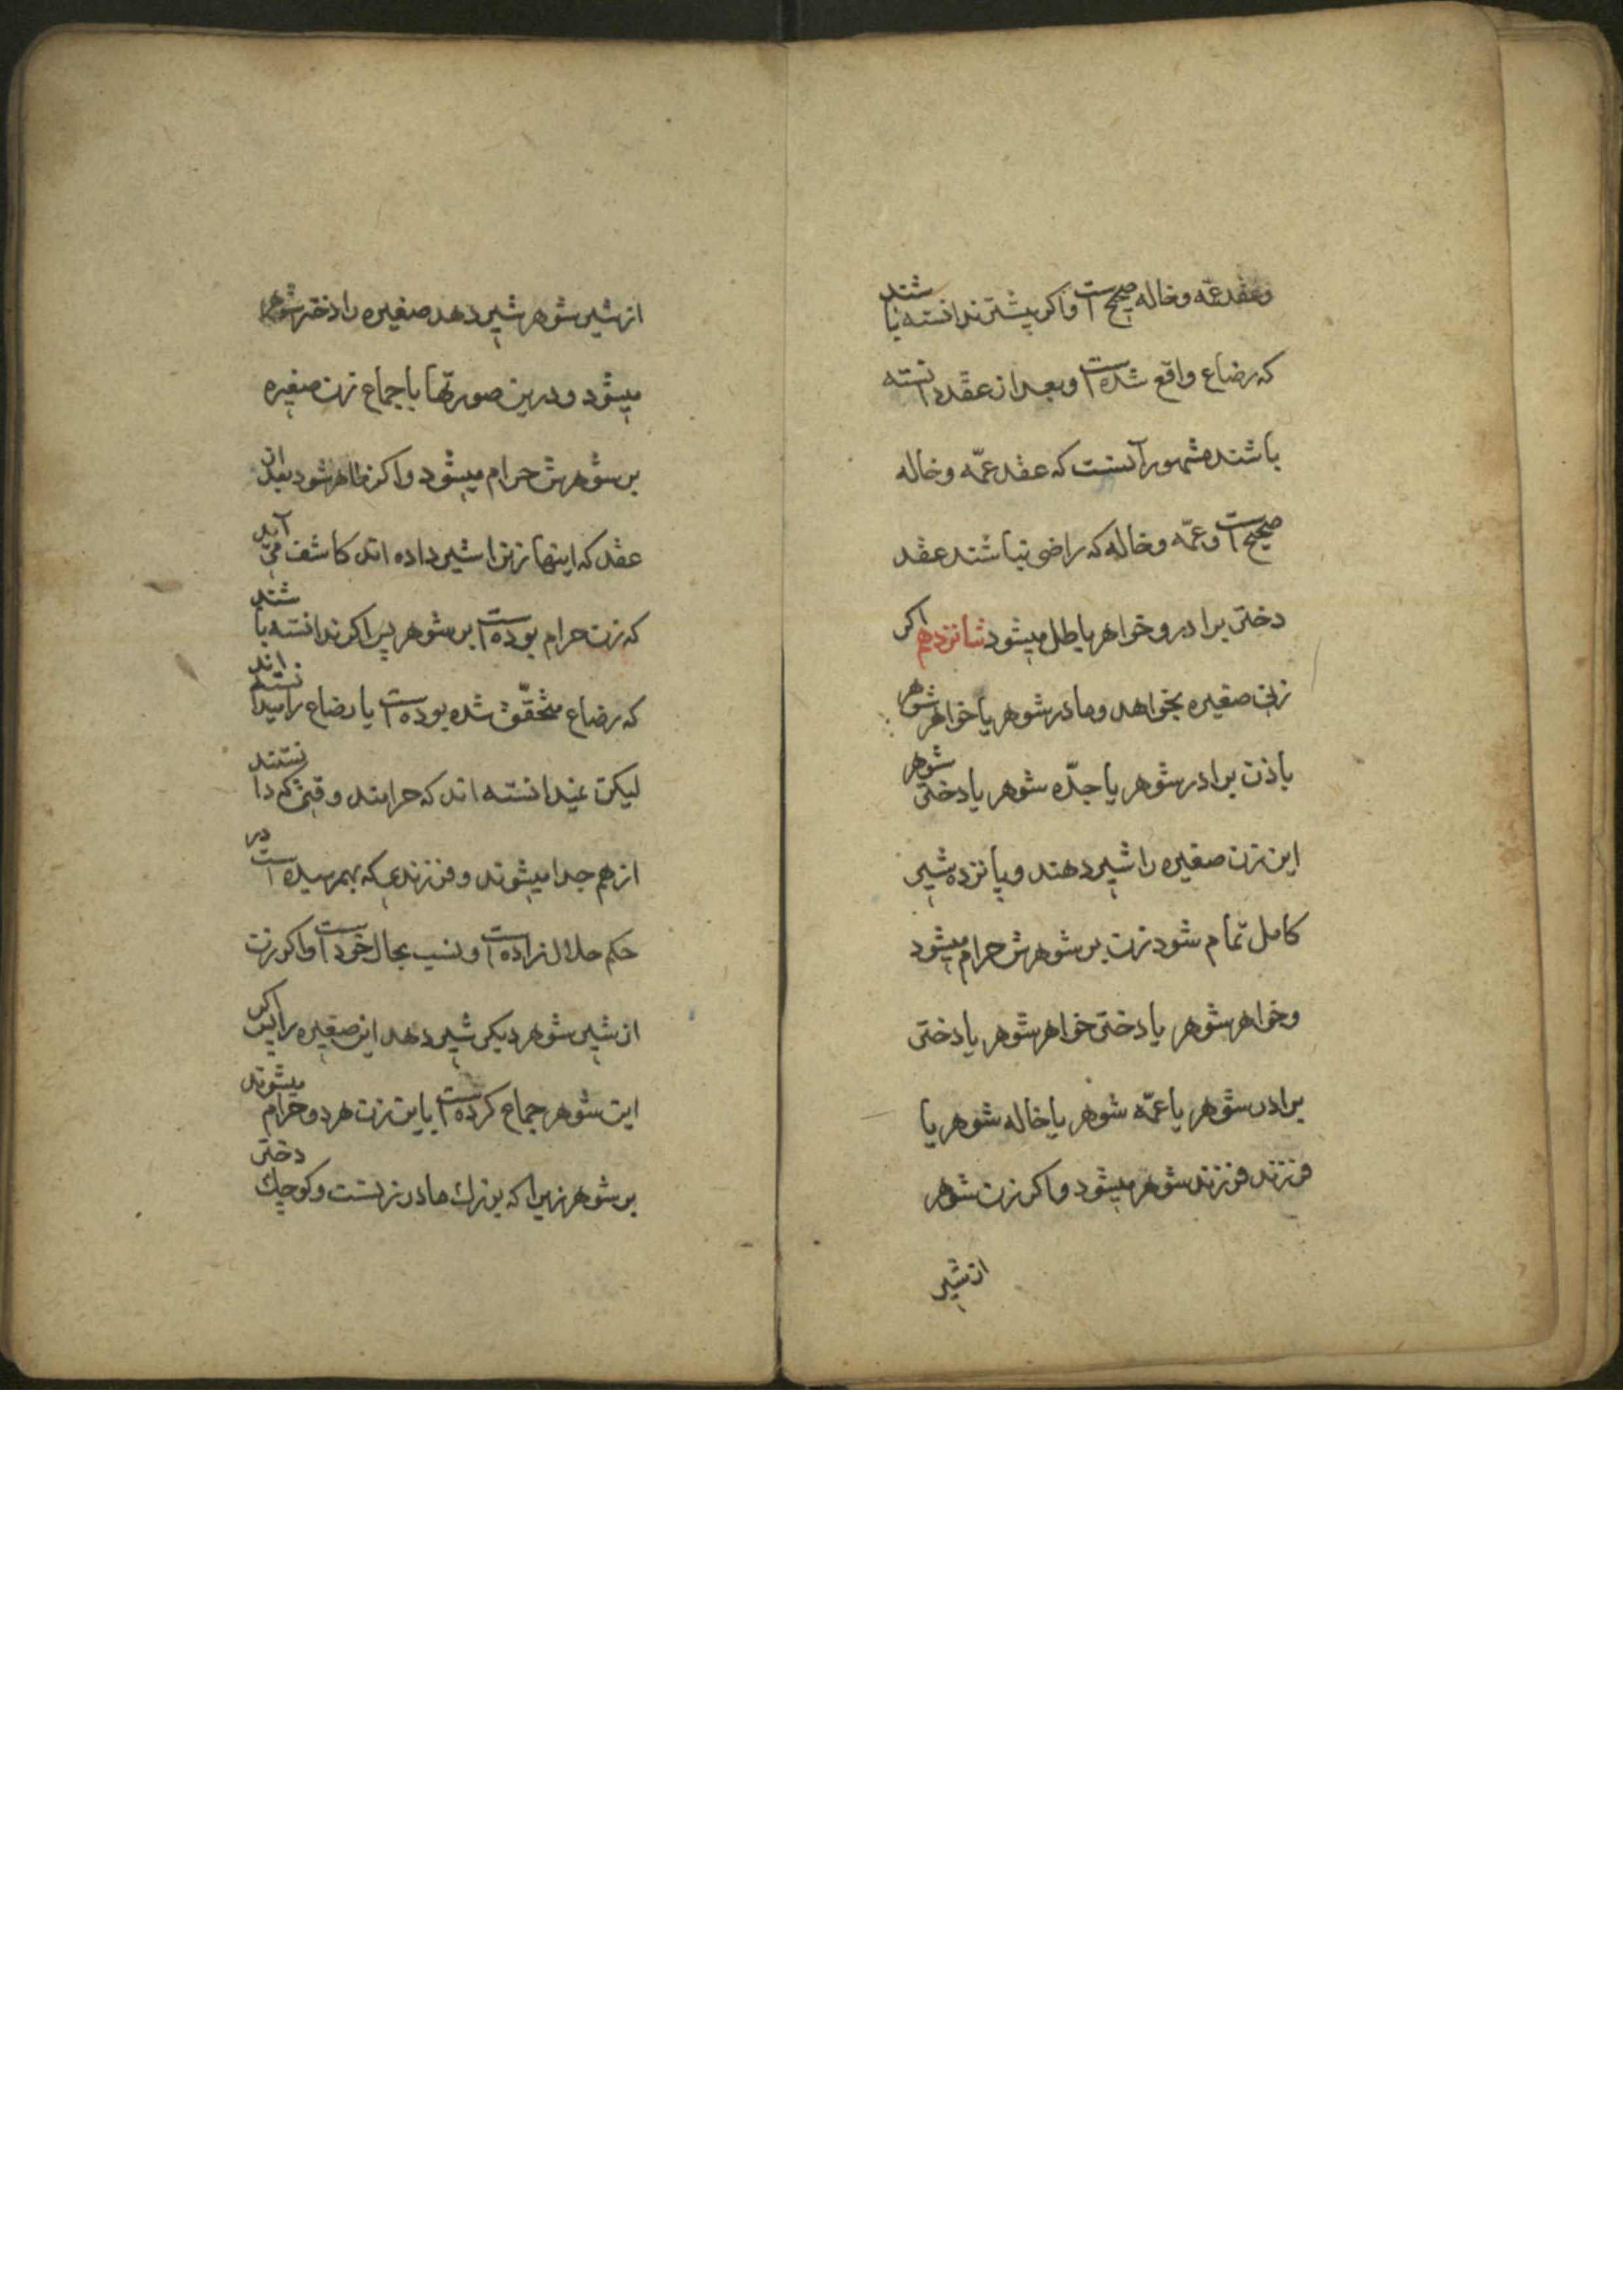 و عقد عمّه و خاله صحیح است و اکر پیشتر ندانسته باشند
که رضاع واقع شده است و بعد از عقد دانسته
باشند مشهور آنست که عقد عمّه و خاله
صحیح است و عمّه و خاله که راضی نباشند عقد
دختر برادر و خواهر باطل میشود شانزدهم اکر
زنی صغیره بخواهد و مادر شوهر یا خواهر شوهر
یا زن برادر شوهر یا جدّه شوهر یا دختر شوهر
این زن صغیره را شیر دهند و پانزده شیر
کامل تمام شود زن بر شوهرش حرام میشود
و خواهر شوهر یا دختر خواهر شوهر یا دختر
برادر شوهر یا عمّه شوهر یا خاله شوهر یا
فرزند فرزند شوهر میشود و اکر زن شوهر
از شیر
از شیر شوهر شیر دهد صغیره را دختر شوهر
میشود و درین صورتها باجماع زن صغیره
بر شوهرش حرام میشود و اکر ظاهر شود بعد از
عقد که اینها زنرا شیر داده اند کاشف می آید
که زن حرام بوده است بر شوهر پس اکر ندانسته باشند
که رضاع متحقّق شده بوده است یا رضاع را میدانسته اند
لیکن نمیدانسته اند که حرامند وقتی که دانستند
از هم جدا میشوند و فرزندی که بهمرسیده است در
حکم حلال زاده است و نسب بحال خود است و اکر زن
از شیر شوهر دیکر شیر دهد این صغیره را پس اکر
این شوهر جماع کرده است باین زن هر دو حرام میشوند
بر شوهر زیرا که بزرك مادر زنست و کوچك دختر